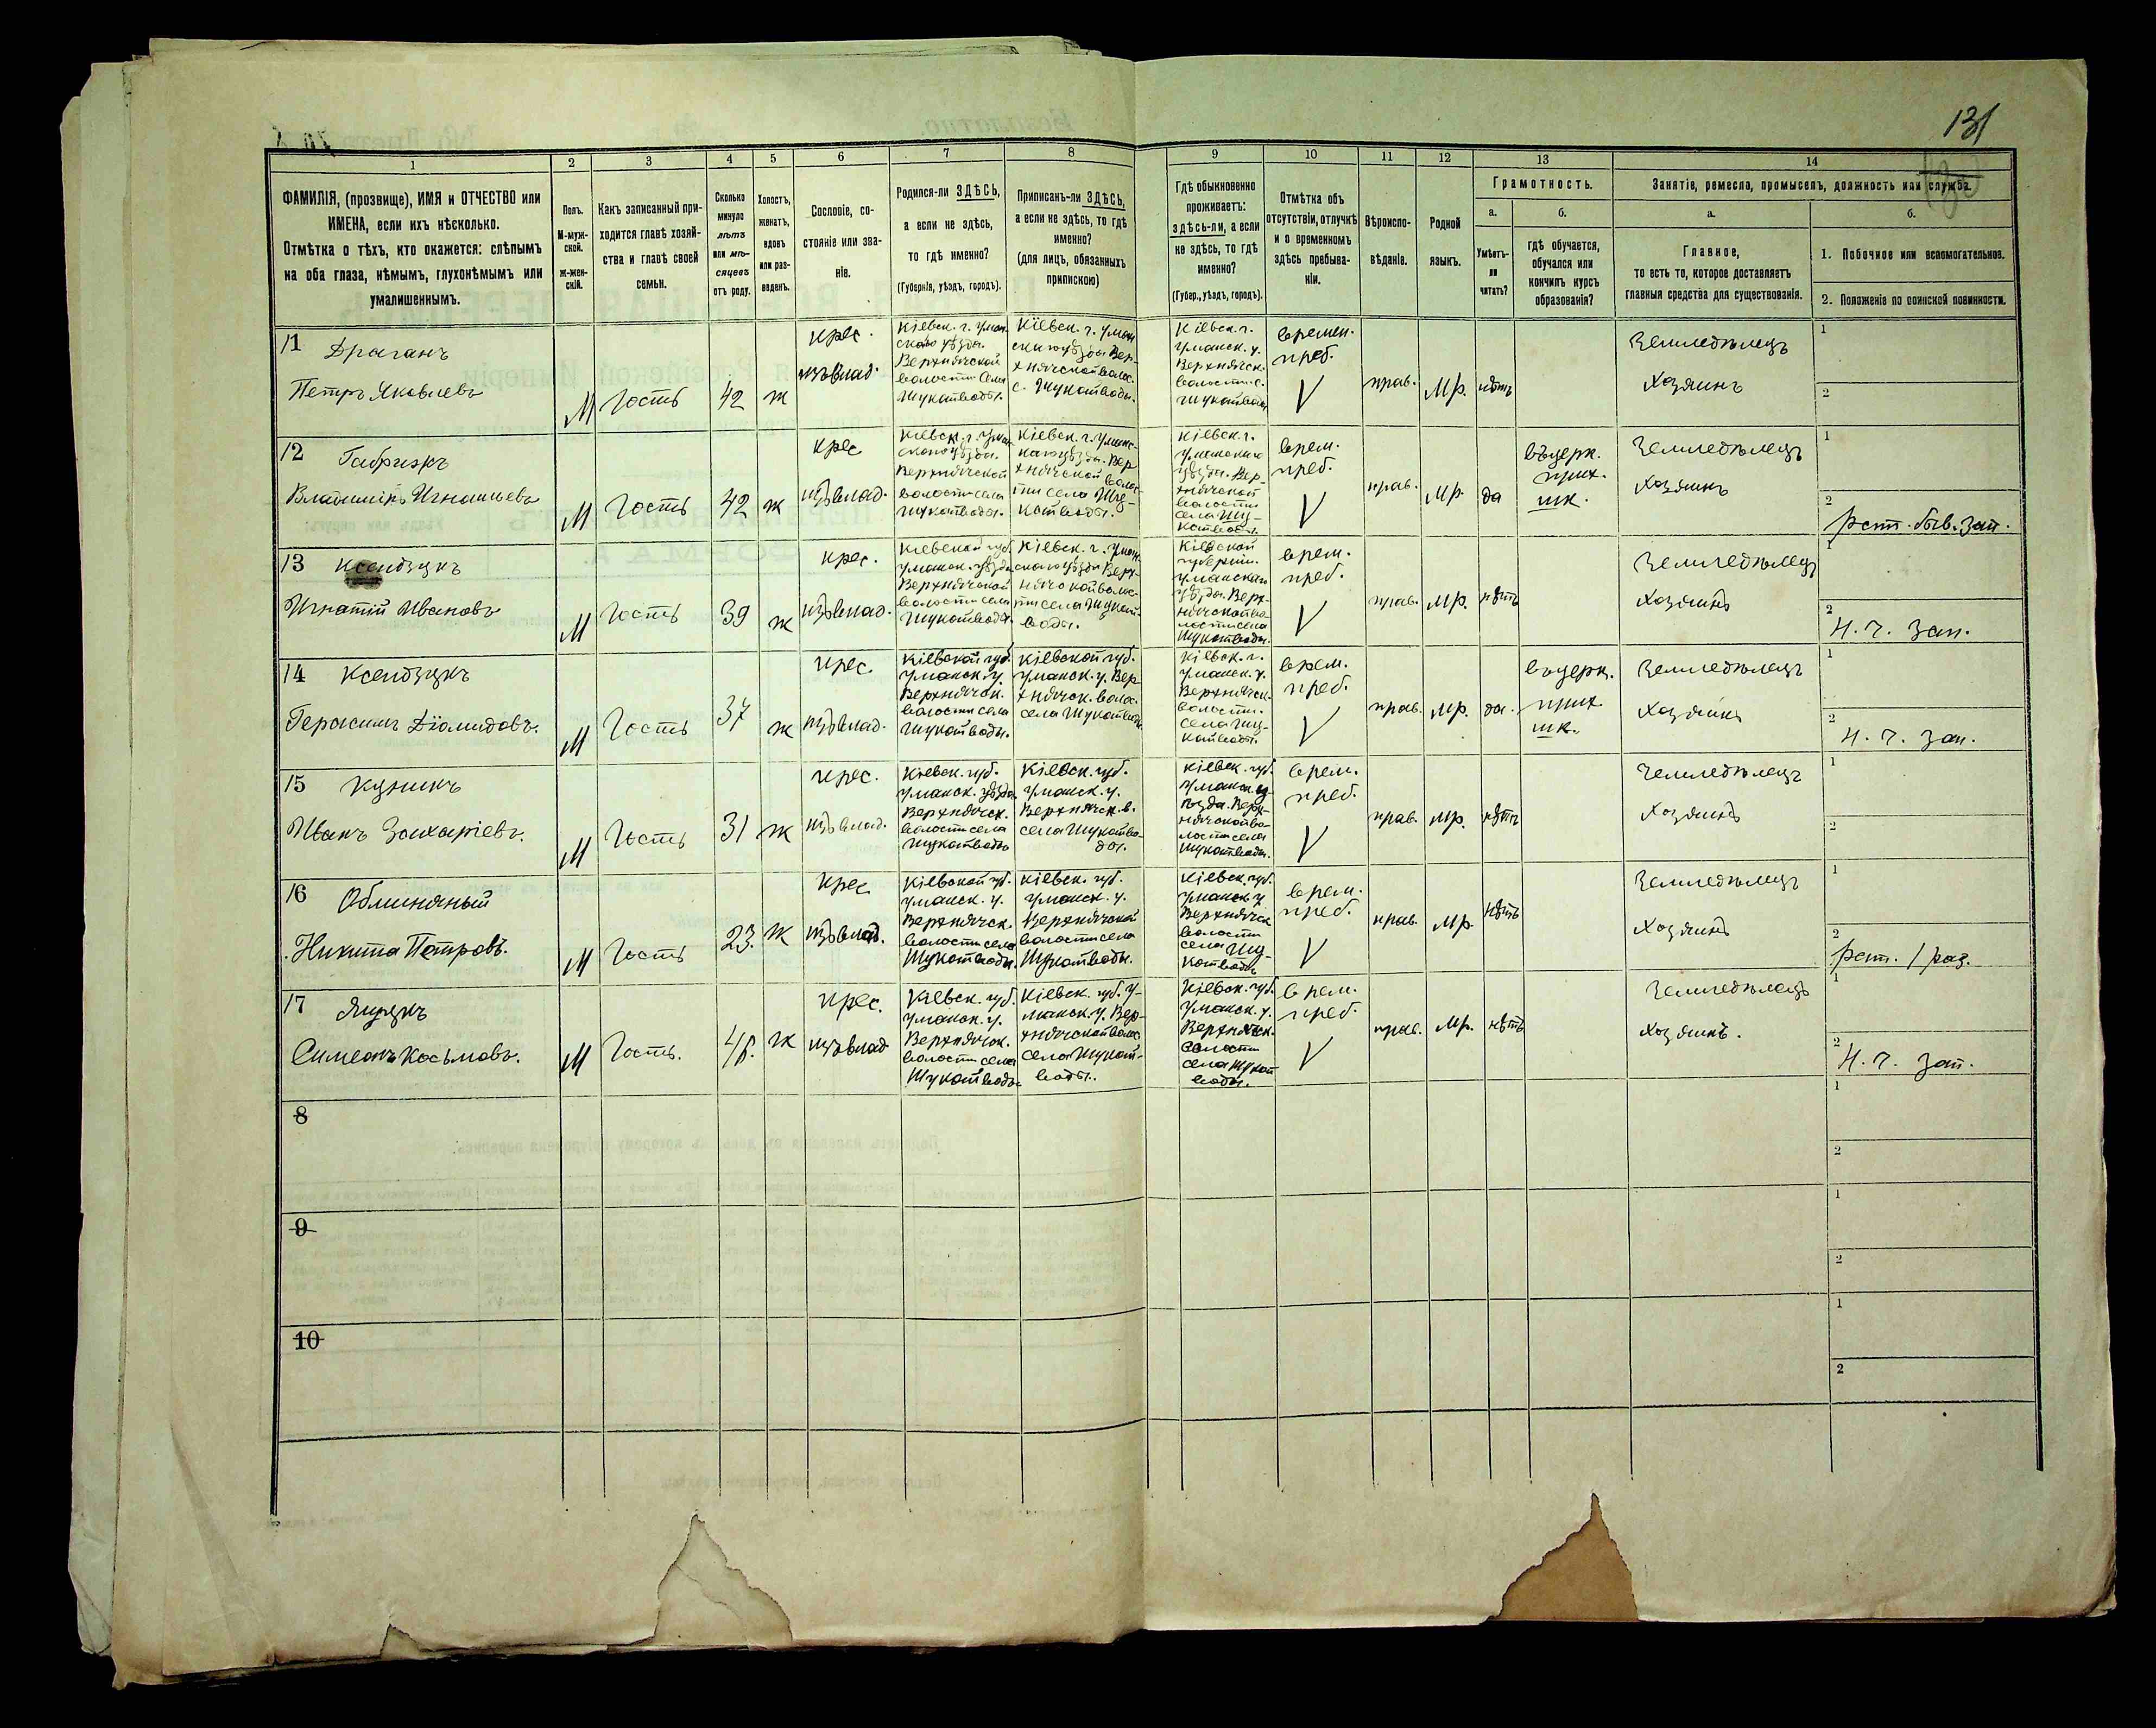 131
1 2 3 4 5 6 7 8 9 10 11 12 13 14
ФАМИЛІЯ, (прозвище), ИМЯ и ОТЧЕСТВО или ИМЕНА, если ихъ нѣсколько.
Отмѣтка о тѣхъ, кто окажется: слѣпымъ на оба глаза, нѣмымъ, глухонѣмымъ или умалишеннымъ.
Полъ.
М-мужской.
ж-женскій.
Какъ записанный приходится главѣ хозяйства и главѣ своей семьи.
Сколько минуло лѣтъ или мѣсяцевъ отъ роду.
Холостъ, женатъ, вдовъ или разведенъ.
Сословіе, состояніе или званіе.
Родился-ли ЗДѢСЬ,
а если не здѣсь,
то гдѣ именно?
(Губернія, уѣздъ, городъ).
Приписанъ-ли ЗДѢСЬ,
а если не здѣсь, то гдѣ именно?
(для лицъ, обязанныхъ припискою)
Гдѣ обыкновенно проживаетъ:
здѣсь-ли, а если не здѣсь, то гдѣ именно?
(Губер., уѣздъ, городъ).
Отмѣтка объ отсутствіи, отлучкѣ и о временномъ здѣсь пребываніи.
Вѣроисповѣданіе.
Родной языкъ.
Грамотность.
а.
Умѣетъ-ли читать?
б.
гдѣ обучается, обучался или кончилъ курсъ образованія?
Занятіе, ремесло, промыселъ, должность или служба.
а.
Главное,
то есть то, которое доставляетъ главныя средства для существованія.
б.
1. Побочное или вспомогательное.
2. Положеніе по воинской повинности.
11 Драганъ
Петръ Яковлевъ
М Гость 42 ж
крес.
изъ влад.
Кіевск. г. Уман-
скаго уѣзда.
Верхнячской
волости Села
Шукайводы.
Кіевск. г. Уман
скаго уѣзда Вер-
хнячской волос.
с. Шукайводы.
Кіевск. г.
Уманск. у.
Верхнячск.
волости с.
Шукайводы
времен.
преб.
V
прав. мр. нѣтъ
Земледѣлецъ
Хозяинъ
1
2
12
Владиміръ Игнатьевъ
М Гость 42 ж
крес
изъ влад.
Кіевск. г. Уман-
скаго уѣзда.
Верхнячской
волости села
Шукайводы.
врем.
преб.
V
прав. мр. да
въ церк.
прих.
шк.
Земледѣлецъ
Хозяинъ
1
2
рат. быв. зап.
13
Игнатій Ивановъ
М Гость 39 ж
крес.
изъ влад.
Кіевской губ.
Уманск. уѣзда
Верхнячской
волости села
Шукайводы.
Кіевской
губерніи.
Уманскаго
уѣзда. Верх-
нячской во-
лости села
Шукайводы.
врем.
преб.
V
прав. мр. нѣтъ
Земледѣлецъ
Хозяинъ
1
2
Н. ч. зап.
14
Герасимъ Діомидовъ.
М Гость 37 ж
крес.
изъ влад.
Кіевской губ.
Уманск. у.
Верхнячск.
волости села
Шукайводы.
Кіевской губ.
Уманск. у. Вер
хнячск. волос.
села Шукайводы.
Кіевск. г.
Уманск. у.
Верхнячск.
волости.
села Шу-
кайводы.
врем.
преб.
V
прав. мр. да.
въ церк.
прих
шк.
Земледѣлецъ
Хозяинъ
1
2
Н. ч. зап.
15
Иванъ Захаріевъ.
М Гость 31 ж
крес.
изъ влад.
Кіевск. губ.
Уманск. уѣзда
Верхнячск.
волости села
Шукайводы
Кіевск. губ.
Уманск. у.
Верхнячск. в.
села Шукайво-
ды.
Кіевск. губ.
Уманск. у-
ѣзда. Верх-
нячской во-
лости села
Шукайводы.
врем.
преб.
V
прав. мр. нѣтъ
Земледѣлецъ
Хозяинъ
1
2
16
Никита Петровъ.
М Гость 23. ж
крес
изъ влад.
Кіевской губ.
Уманск. у.
Верхнячск.
волости села
Шукайводы.
Кіевск. губ.
Уманск. у.
Верхнячской
волости села
Шукайводы.
Кіевск. губ.
Уманск. у
Верхнячск
волости
села Шу-
кайводы
врем.
преб.
V
прав. мр. нѣтъ
Земледѣлецъ
Хозяинъ
1
2
рат. 1 раз.
17
Симеонъ Косьмовъ.
М Гость. ж
крес.
изъ влад
Кіевск. губ.
Уманск. у.
Верхнячск.
волости села
Шукайводы.
Кіевск. губ. У-
манск. у. Вер-
хнячской волос
села Шукай-
воды.
Кіевск. губ.
Уманск. у.
Верхнячск.
волости
села Шукай
воды.
врем.
преб.
V
прав. мр. нѣтъ
Земледѣлецъ
Хозяинъ.
1
2
Н. ч. зап.
8
1
2
9
1
2
10
1
2